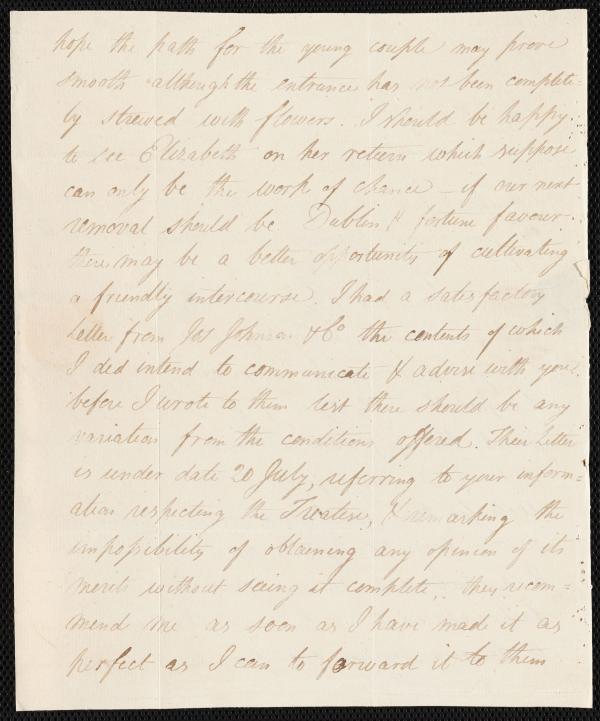 hope the path for the young couple may prove
smooth although the entrance has not been complete=
ly strewed with flowers. I should be happy
to see Elizabeth on her return which suppose
can only be the work of chance – if our next
removal should be Dublin & fortune favour
there may be a better opportunity of cultivating
a friendly intercourse. I had a satisfactory
Letter from Jos Johnson & Co the contents of which
I did intend to communicate & advise with you
before I wrote to them lest there should be any
variation from the conditions offered. Their Letter
is under date 20 July, referring to your inform=
ation respecting the Treatise, & remarking the
impossibility of obtaining any opinion of its
merits without seeing it complete, they recom=
mend me as soon as I have made it as
perfect as I can to forward it to them